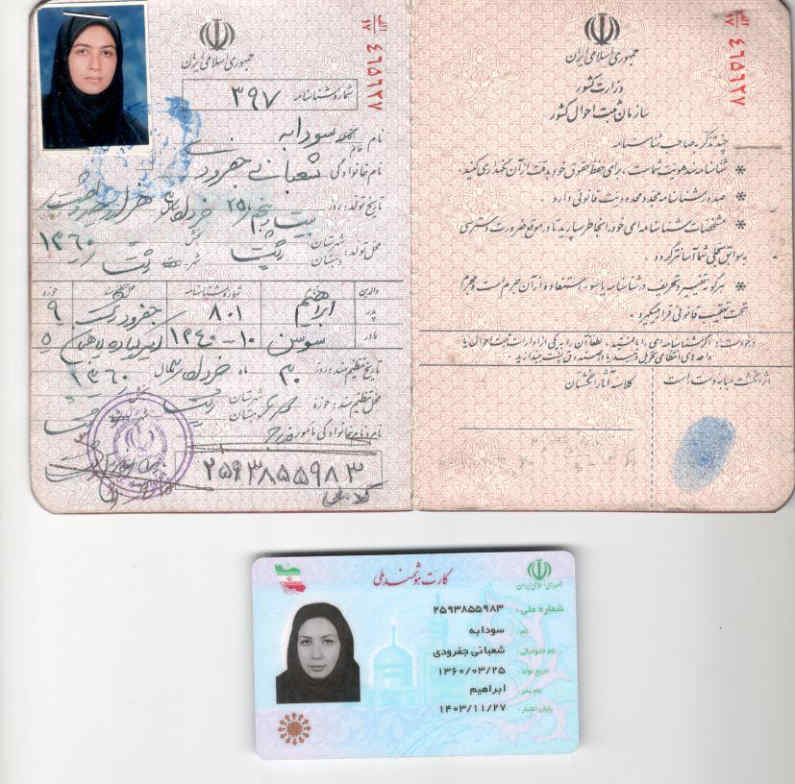 جمهوری اسلامی ایران
شماره شناسنامه ۳۹۷
نام سودابه
نام خانوادگی شعبانی جفرودی
تاریخ تولد: روز بیست و پنجم ۲۵ خرداد
۱۳۶۰
محل تولد: شهرستان رشت
والدین شماره شناسنامه حوزه
پدر ابراهیم ۸۰۱ ۹
مادر سوسن ۵
تاریخ تنظیم سند: روز ماه خرداد سال ۱۳۶۰
محل تنظیم سند: حوزه شهرستان رشت
نام و نام خانوادگی مامور
۲۵۹۳۸۵۵۹۸۳
کد ملی
الف
۱۷ ۴۶۵۶۲۷
جمهوری اسلامی ایران
وزارت کشور
سازمان ثبت احوال کشور
چند تذکر به صاحب شناسنامه
* شناسنامه سند هویت شماست، برای حفظ حقوق خود بدقت از آن نگهداری کنید.
* صدور شناسنامه مجدد محدودیت قانونی دارد.
* مشخصات شناسنامه ای خود را بخاطر بسپارید تا در موقع ضرورت دسترسی
به سوابق سجلی شما آسانتر گردد.
* هرگونه تغییر و تحریف در شناسنامه یا سوء استفاده از آن جرم است و مجرم
تحت تعقیب قانونی قرار میگیرد.
اثر انگشت سبابه دست راست
کلاسه آثار انگشتان
کارت هوشمند ملی
جمهوری اسلامی ایران
شماره ملی: ۲۵۹۳۸۵۵۹۸۳
نام: سودابه
نام خانوادگی: شعبانی جفرودی
تاریخ تولد: ۱۳۶۰/۰۳/۲۵
نام پدر: ابراهیم
پایان اعتبار: ۱۴۰۳/۱۱/۲۷